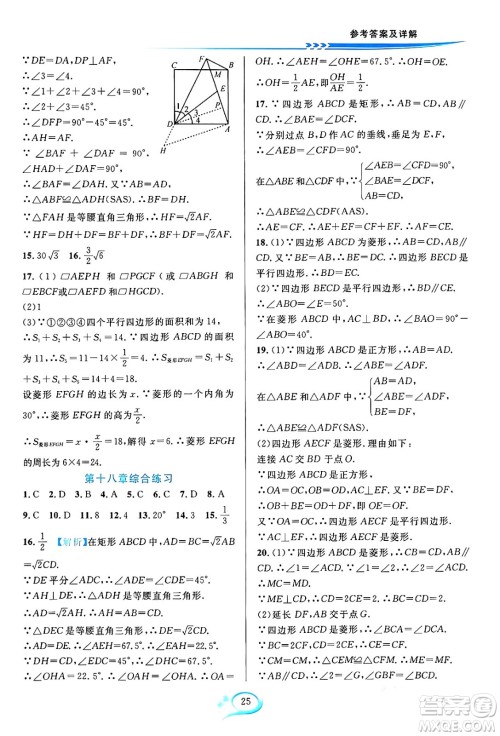 参考答案及详解
∵DE=DA,DP⊥AF,
∴∠3=∠4.
∵∠1+∠2+∠3+∠4=90°,
∴∠DFP=90°-45°=45°.
∴AH=AF.
∵∠BAF+∠DAF=90°,
∠HAD+∠DAF=90°,
∴∠BAF=∠DAH.
∴△ABF≌△ADH(SAS).
∴BF=DH.
∵△FAH是等腰直角三角形,∴HF=√2AF.
∵HF=DH+DF=BF+DF,∴BF+DF=√2AF.
15.30√3 16.3/2√6
17.(1)▱AEPH和▱PGCF(或▱ABGH和▱EBCF或▱AEFD和▱HGCD)
(2)1
(3)∵①②③④四个平行四边形的面积和为14,
∴S₁+S₂+S₃+S₄=14×1/2=7.∵四边形ABCD的面积
为11,∴S₅=11-7=4.∴S菱形EFGH=S₁+S₂+
S₃+S₄+S₅=18.
设菱形EFGH的边长为x.∵菱形的一个内角为
30°,∴菱形EFGH的高为x/2.
∴S菱形EFGH=x·x/2=18.∴x=6(舍负).∴菱形EFGH
的周长为6×4=24.
第十八章综合练习
1.C 2.D 3.C 4.D 5.C 6.B 7.B 8.A
9.C 10.D 11.8 12.4 13.20° 14.√2 15.1/3
16.1/2 【解析】在矩形ABCD中,AD=BC=√2AB=
√2CD.
∵DE平分∠ADC,∴∠ADE=∠CDE=45°.
∵AH⊥DE,∴△ADH是等腰直角三角形.
∴AD=√2AH.∴AH=AB=CD.
∵△DEC是等腰直角三角形,∴DE=√2CD.
∴AD=DE.∴∠AED=67.5°.
∴∠AEB=180°-45°-67.5°=67.5°.
∵AH=DH,∴DH=CD.∴∠DHC=∠DCH=67.5°.
∴∠OHA=22.5°.∴∠OAH=∠OHA.∴OA=
OH.∴∠AEH=∠OHE=67.5°.∴OH=OE.
∴OH=1/2AE,即OH/AE=1/2.
17.∵四边形ABCD是矩形,∴AB∥CD,AB=CD.
∵分别过点B,D作AC的垂线,垂足分别为E,F,
∴∠AEB=∠CFD=90°,∠BAE=∠DCF.
在△ABE和△CDF中,{∠AEB=∠CFD=90°,
∠BAE=∠DCF,
AB=CD,
∴△ABE≌△CDF(AAS).∴AE=CF.
18.(1)∵四边形ABCD为菱形,∴AB=CD,AB∥CD.
∵BE=AB,∴BE=CD,BE∥CD.
∴四边形BECD是平行四边形.∴BD=EC.
(2)∵四边形BECD是平行四边形,
∴BD∥CE.∴∠ABO=∠E=50°.
∵在菱形ABCD中,
AC⊥BD,∴∠BAO=90°-∠ABO=40°.
19.(1)∵四边形ABCD是正方形,
∴AB=AD,∠ABD=∠ADB.∴∠ABE=∠ADF.
在△ABE与△ADF中,{AB=AD,
∠ABE=∠ADF,
BE=DF,
∴△ABE≌△ADF(SAS).
(2)四边形AECF是菱形.理由如下:
连接AC交BD于点O.
∵四边形ABCD是正方形,
∴OA=OC,OB=OD,AC⊥EF.
∵BE=DF,∴OB+BE=OD+DF,即OE=OF.
又∵OA=OC,∴四边形AECF是平行四边形.
∵AC⊥EF,∴四边形AECF是菱形.
20.(1)∵四边形ABCD是菱形,∴AB∥CD.
∴∠1=∠ACD.∵∠1=∠2,∴∠ACD=∠2.
∴MC=MD.∵ME⊥CD,∴CD=2CE.∵CE=1,
∴CD=2.∴BC=CD=2.
(2)延长DF,BA交于点G.
∵四边形ABCD是菱形,∴∠BCA=∠DCA.
∵BC=2CF,CD=2CE,∴CE=CF.
∵CM=CM,∴△CEM≌△CFM.∴ME=MF.
25